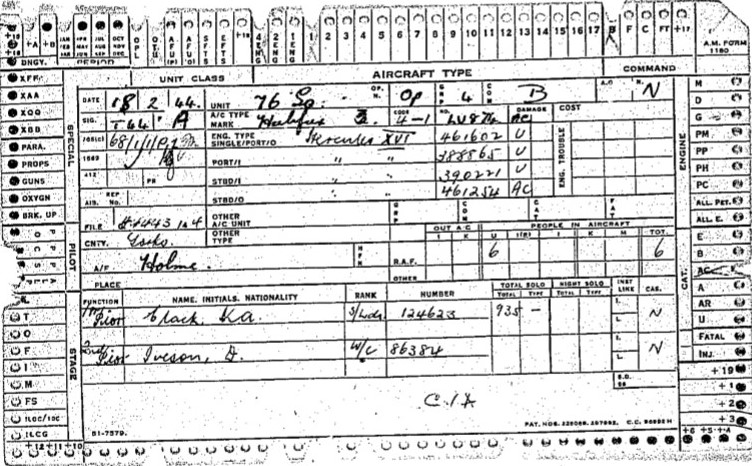 +A +B JAN FEB MAR APR MAY JUN JUL AUG SEP OCT NOV DEC OPL OTU AFU (P) AFU (O) SFTS EFTS +19 4 ENG 2 ENG 1 ENG 1 2 3 4 5 6 7 8 9 10 11 12 13 14 15 16 17 B F C FT +17
A.M. FORM 1180
DNGY. PERIOD UNIT CLASS AIRCRAFT TYPE COMMAND
XFF
XAA
XOQ
XBD
PARA.
PROPS
GUNS
OXYGN
BRK. UP
SPECIAL
PILOT
STAGE
DATE 18 2 44. UNIT 76 Sq. OPN. Op GRP 4 COM B A.O. N. N
SIG. T44 A A/C TYPE MARK Halifax CODE 4-1 NO. DAMAGE AC COST
765(C) 68/1/1 ENG. TYPE SINGLE/PORT/O Hercules XVI 461602 U
1669 PORT/I " " 388565 U
412 PR STBD/I " " 390221 U
AIB. REP No. STBD/O " 461254 AC
ENG. TROUBLE
FILE OTHER A/C UNIT GRP COM CAT FAT
CNTY. Yorks. OTHER TYPE OUT A C PEOPLE IN AIRCRAFT
I K U I(E) I K M TOT.
A/F Holme. R.A.F. 6 6
PLACE OTHER
FUNCTION NAME. INITIALS. NATIONALITY RANK NUMBER TOTAL SOLO NIGHT SOLO INST LINK CAS.
TOTAL TYPE TOTAL TYPE
1st Pilot Clack, K.A. S/Ldr. 124623 935 — I. L. N
2nd Pilot Iveson, D. W/C 86384 I. L. N
C.1A
51-7579. PAT. NOS.
T
O
F
I
M
FS
ILOC/IOC
ILCG
+12 +11 +10
M
D
G
PM
PP
PH
PC
ALL. PET.
ALL E.
E
B
AC
A
AR
U
FATAL
INJ.
+19
+1
+2
+3
+6 +5 +4
ENGINE
CAT.